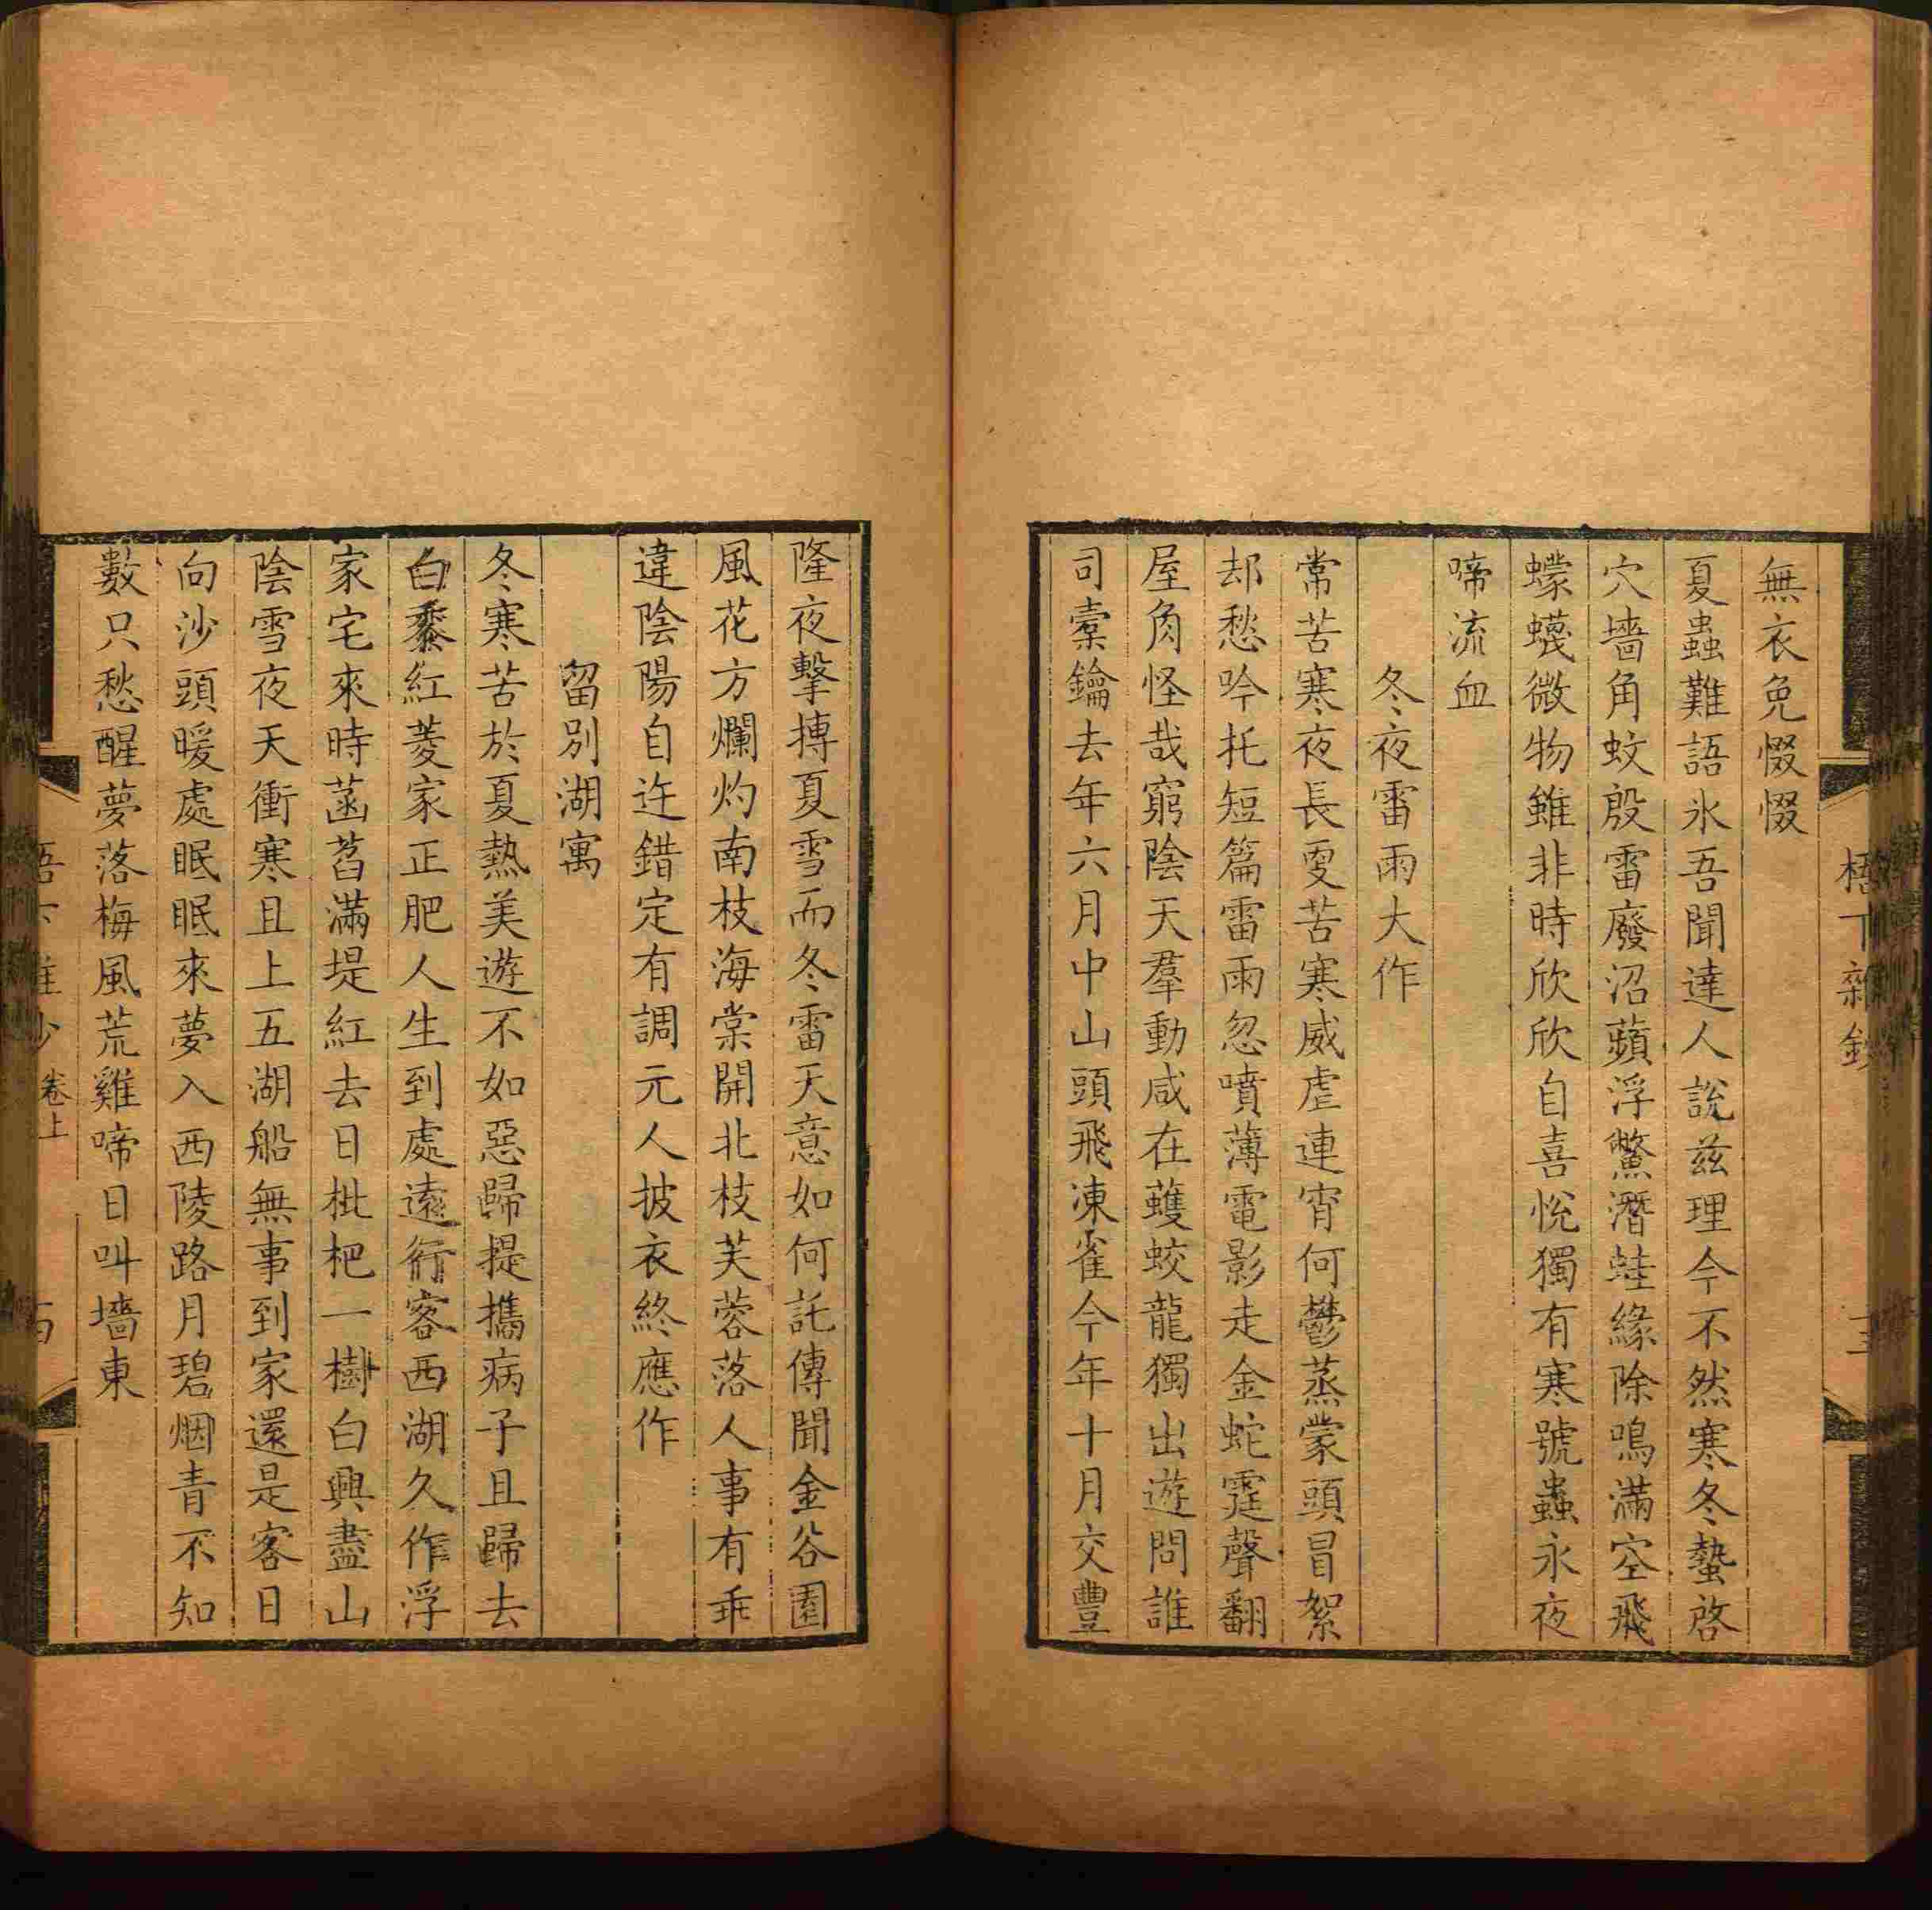 無衣免惙惙
夏蟲難語氷吾聞達人說茲理今不然寒冬蟄啓
穴墻角蚊殷雷廢沼蘋浮鱉潛蛙緣除鳴滿空飛
蠓蠛微物雖非時欣欣自喜悅獨有寒號蟲永夜
啼流血
冬夜雷雨大作
常苦寒夜長更苦寒威虐連宵何鬱蒸蒙頭冒絮
却愁吟托短篇雷雨忽噴薄電影走金蛇霆聲翻
屋角怪哉窮陰天羣動咸在蠖蛟龍獨出遊問誰
司橐鑰去年六月中山頭飛凍雀今年十月交豐
隆夜擊搏夏雪而冬雷天意如何託傳聞金谷園
風花方爛灼南枝海棠開北枝芙蓉落人事有乖
違陰陽自迕錯定有調元人披衣終應作
留別湖寓
冬寒苦於夏熱美遊不如惡歸提攜病子且歸去
白黍紅菱家正肥人生到處遠行客西湖久作浮
家宅來時菡萏滿堤紅去日枇杷一樹白興盡山
陰雪夜天衝寒且上五湖船無事到家還是客日
向沙頭暖處眠眠來夢入西陵路月碧烟青不知
數只愁醒夢落梅風荒雞啼日叫墻東
卷上